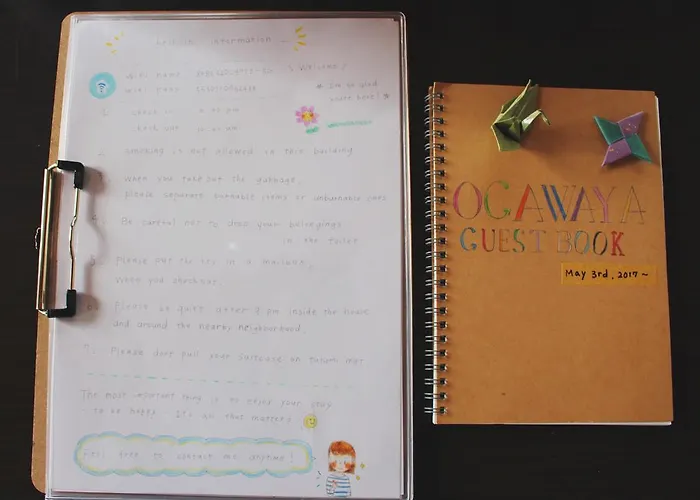 information
wifi name
wifi pass
Welcome!
I'm so glad
you're here!
check in
check out
2. smoking is not allowed in this building
when you take out the garbage,
please separate burnable items or unburnable ones
4. Be careful not to drop your belongings
in the toilet
5. Please put the key in a mailbox,
when you checkout.
6. Please be quiet after 9 pm inside the house
and around the nearby neighbourhood.
7. Please don't pull your suitcase on tatami mat
The most important thing is to enjoy your stay
to be happy. It's all that matters!
Feel free to contact me anytime!
OGAWAYA
GUEST BOOK
May 3rd, 2017~